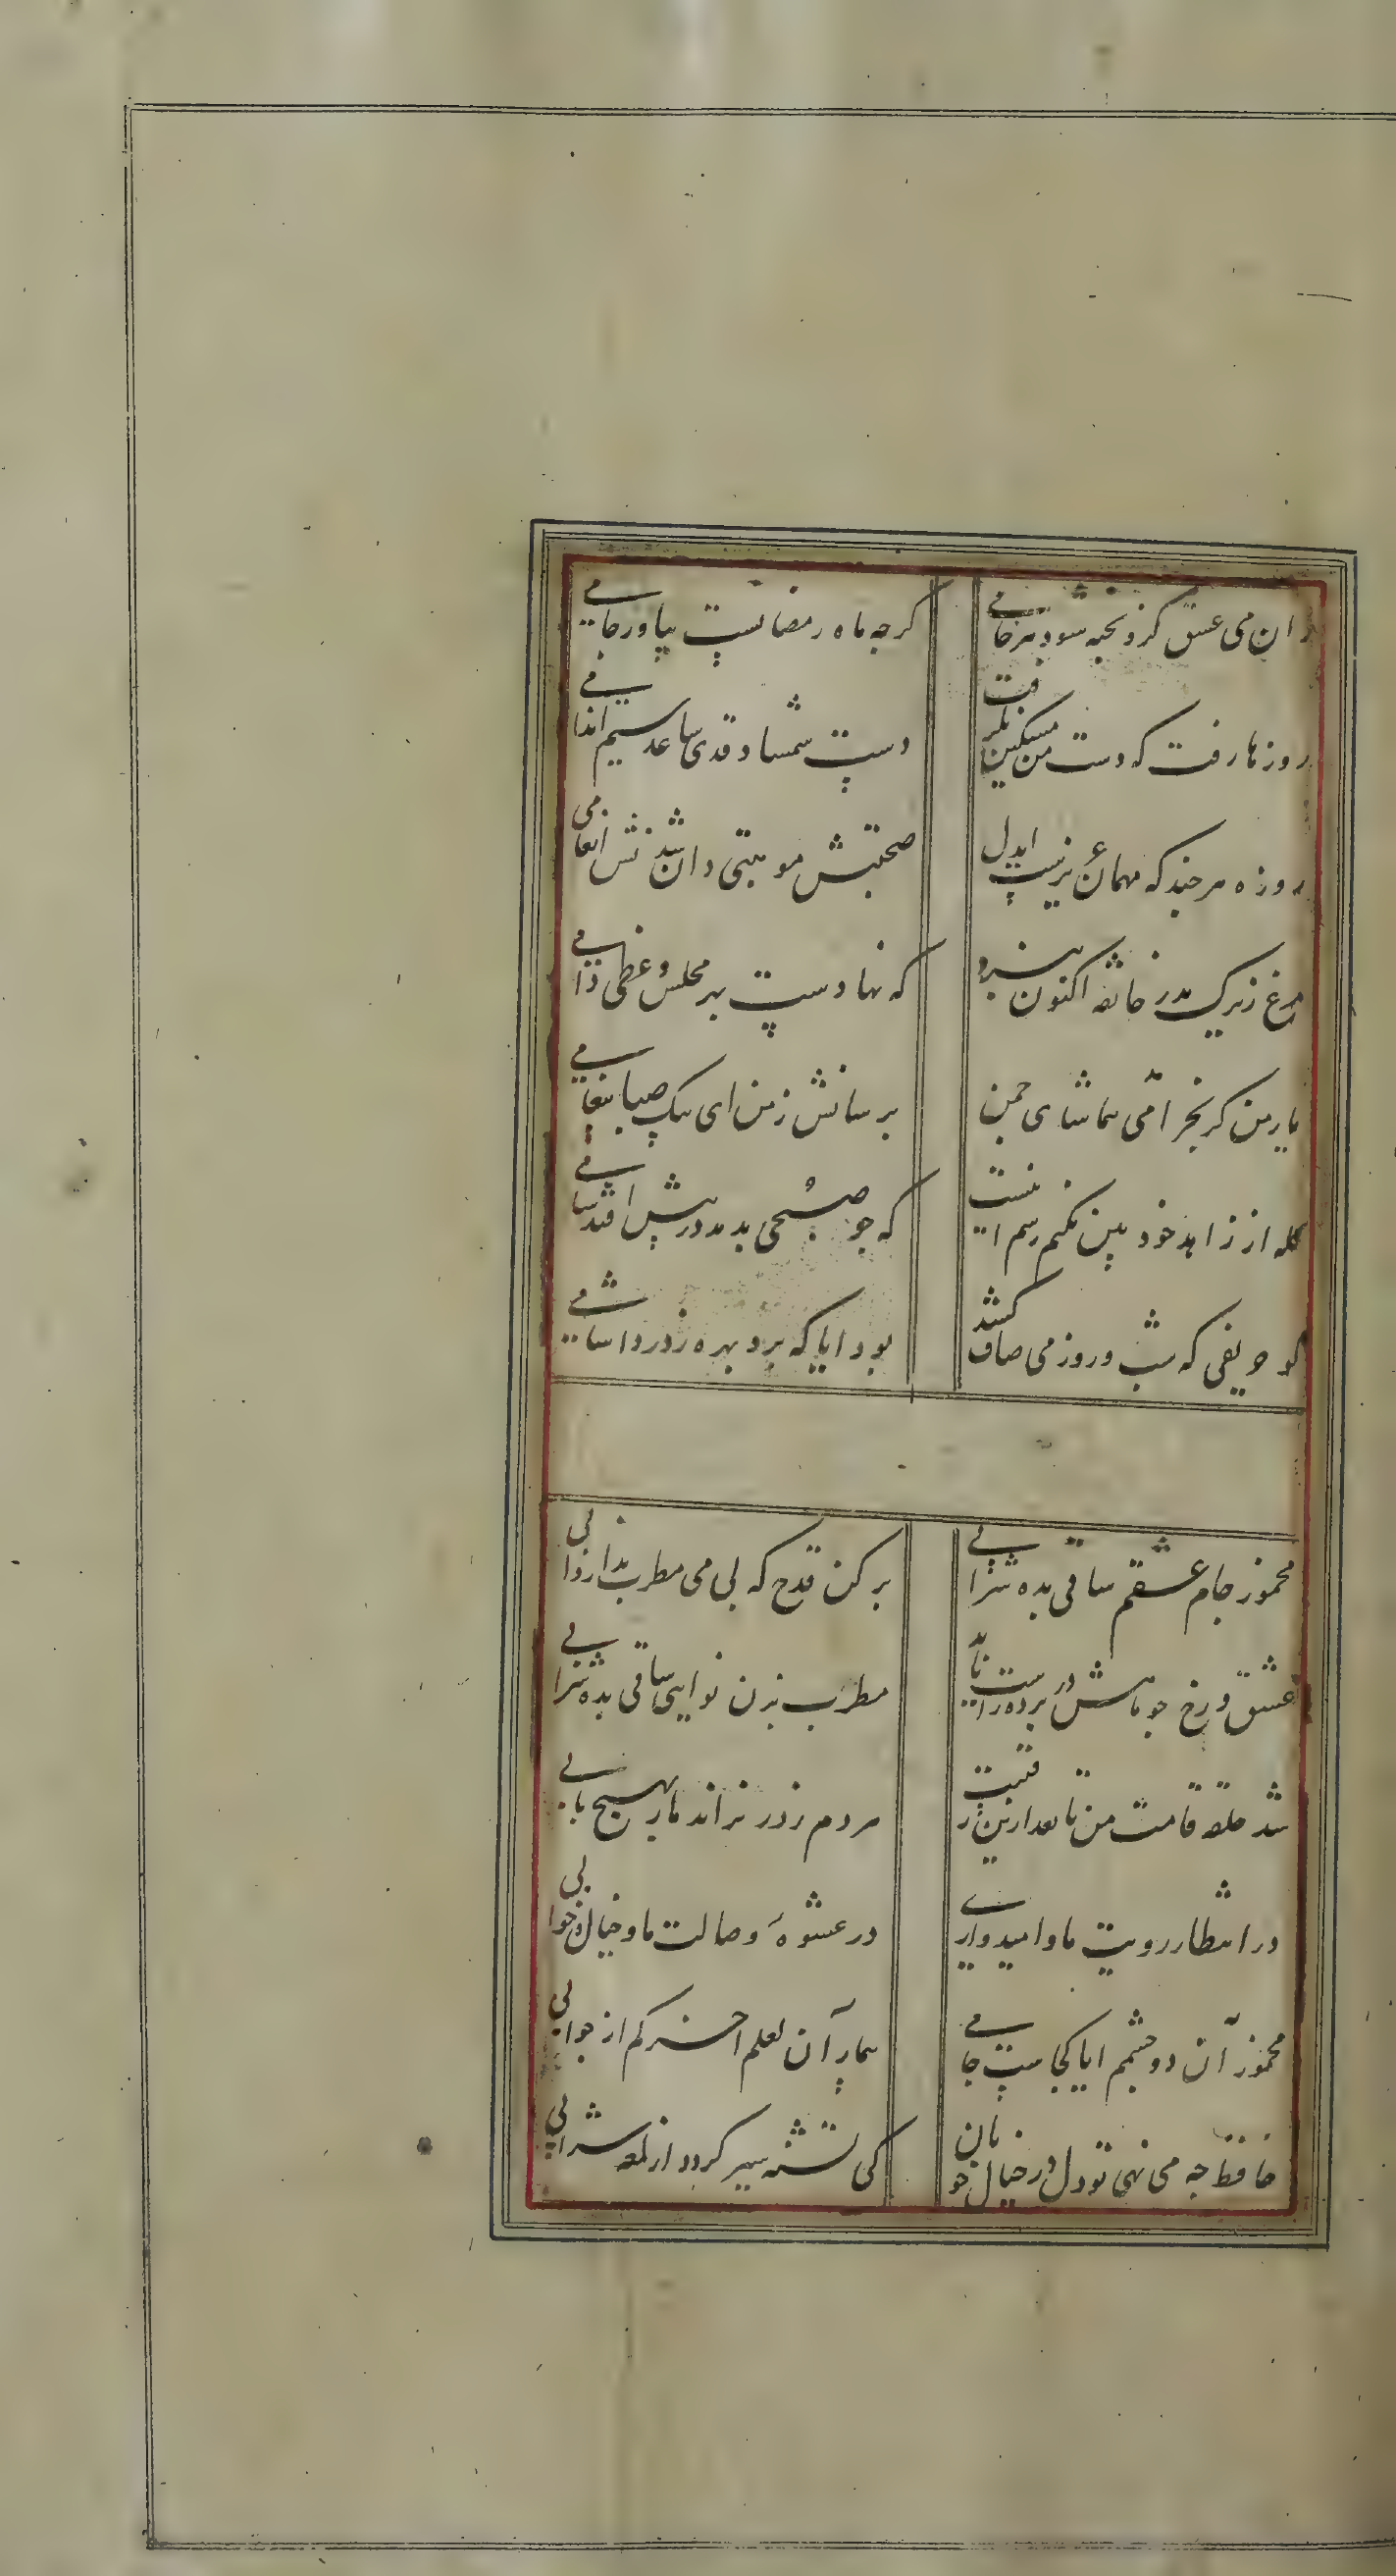 زان می عشق کزو پخته شود هر خامی
کرچه ماه رمضانست بیاور جامی
روزها رفت که دست من مسکین نکرفت
دست شمشاد قدی ساعد سیم اندامی
روزه هر چند که مهمان عزیزست ایدل
صحبتش موهبتی دان و شدنش انعامی
مرغ زیرک بدر خانقه اکنون نپرد
که نهادست بهر مجلس وعظی دامی
یار من کر بخرامی تماشای چمن
برسانش ز من ای پیک صبا پیغامی
کله از زاهد خود بین نکنم رسم اینست
که چو صبحی بدمد در پیش افتد شامی
کو حریفی که شب و روز می صاف کشد
بود ایا که برد بهره ز درد اشامی
مخمور جام عشقم ساقی بده شرابی
پر کن قدح که بی می مطرب ندارد ابی
عشق و رخ چو ماهش در پرده راست ناید
مطرب بزن نوایی ساقی بده شرابی
شد حلقه قامت من تا بعد ازین رقیبت
مردم ز در نراند ما را بهیچ بابی
در انتظار رویت ما و امیدواری
در عشوهٔ وصالت ما و خیال و خوابی
مخمور آن دو چشمم ایا کجاست جامی
بیمار آن لعلم اخر کم از جوابی
حافظ چه می نهی تو دل در خیال خوبان
کی تشنه سیر کردد از لمعه سرابی